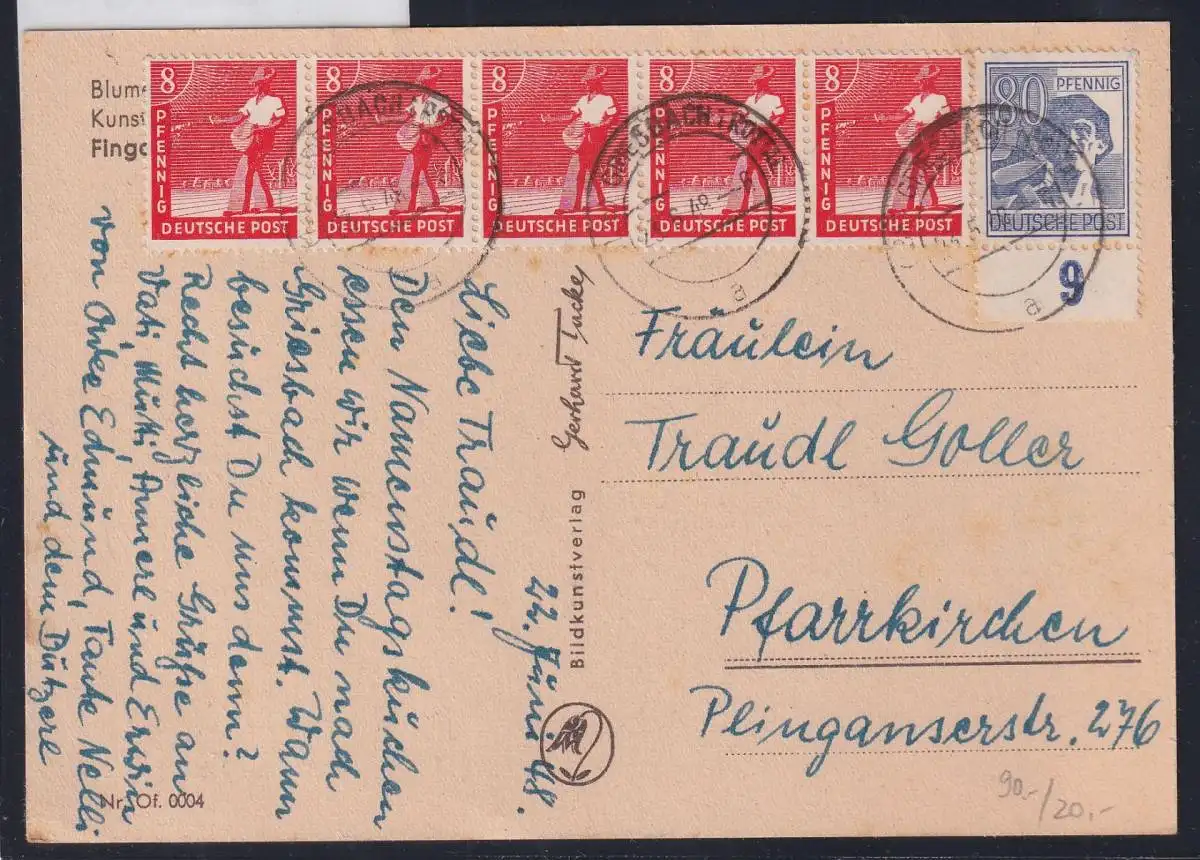 Blume
Kunst
Finga
8 PFENNIG DEUTSCHE POST
8 PFENNIG DEUTSCHE POST
8 PFENNIG DEUTSCHE POST
8 PFENNIG DEUTSCHE POST
8 PFENNIG DEUTSCHE POST
80 PFENNIG
DEUTSCHE POST
9
GRIESBACH (ROTTAL
a
22. Juni 48.
Liebe Traudl!
Den Namenstagskuchen
essen wir wenn Du nach
Griesbach kommst. Wann
besuchst Du uns denn?
Recht herzliche Grüße an
Vati, Mutti, Annerl und Erwin
von Onkel Edmund, Tante Nelli
und dem Dutzerl
Bildkunstverlag Gerhard
Nr. Of. 0004
Fräulein
Traudl Goller
Pfarrkirchen
Plinganserstr. 276
90.-/20.-